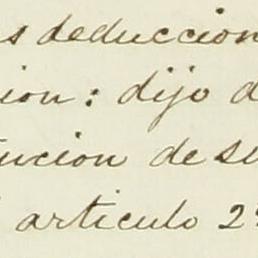 s deduccion
ion: dijo d
tucion de su
articulo 2º